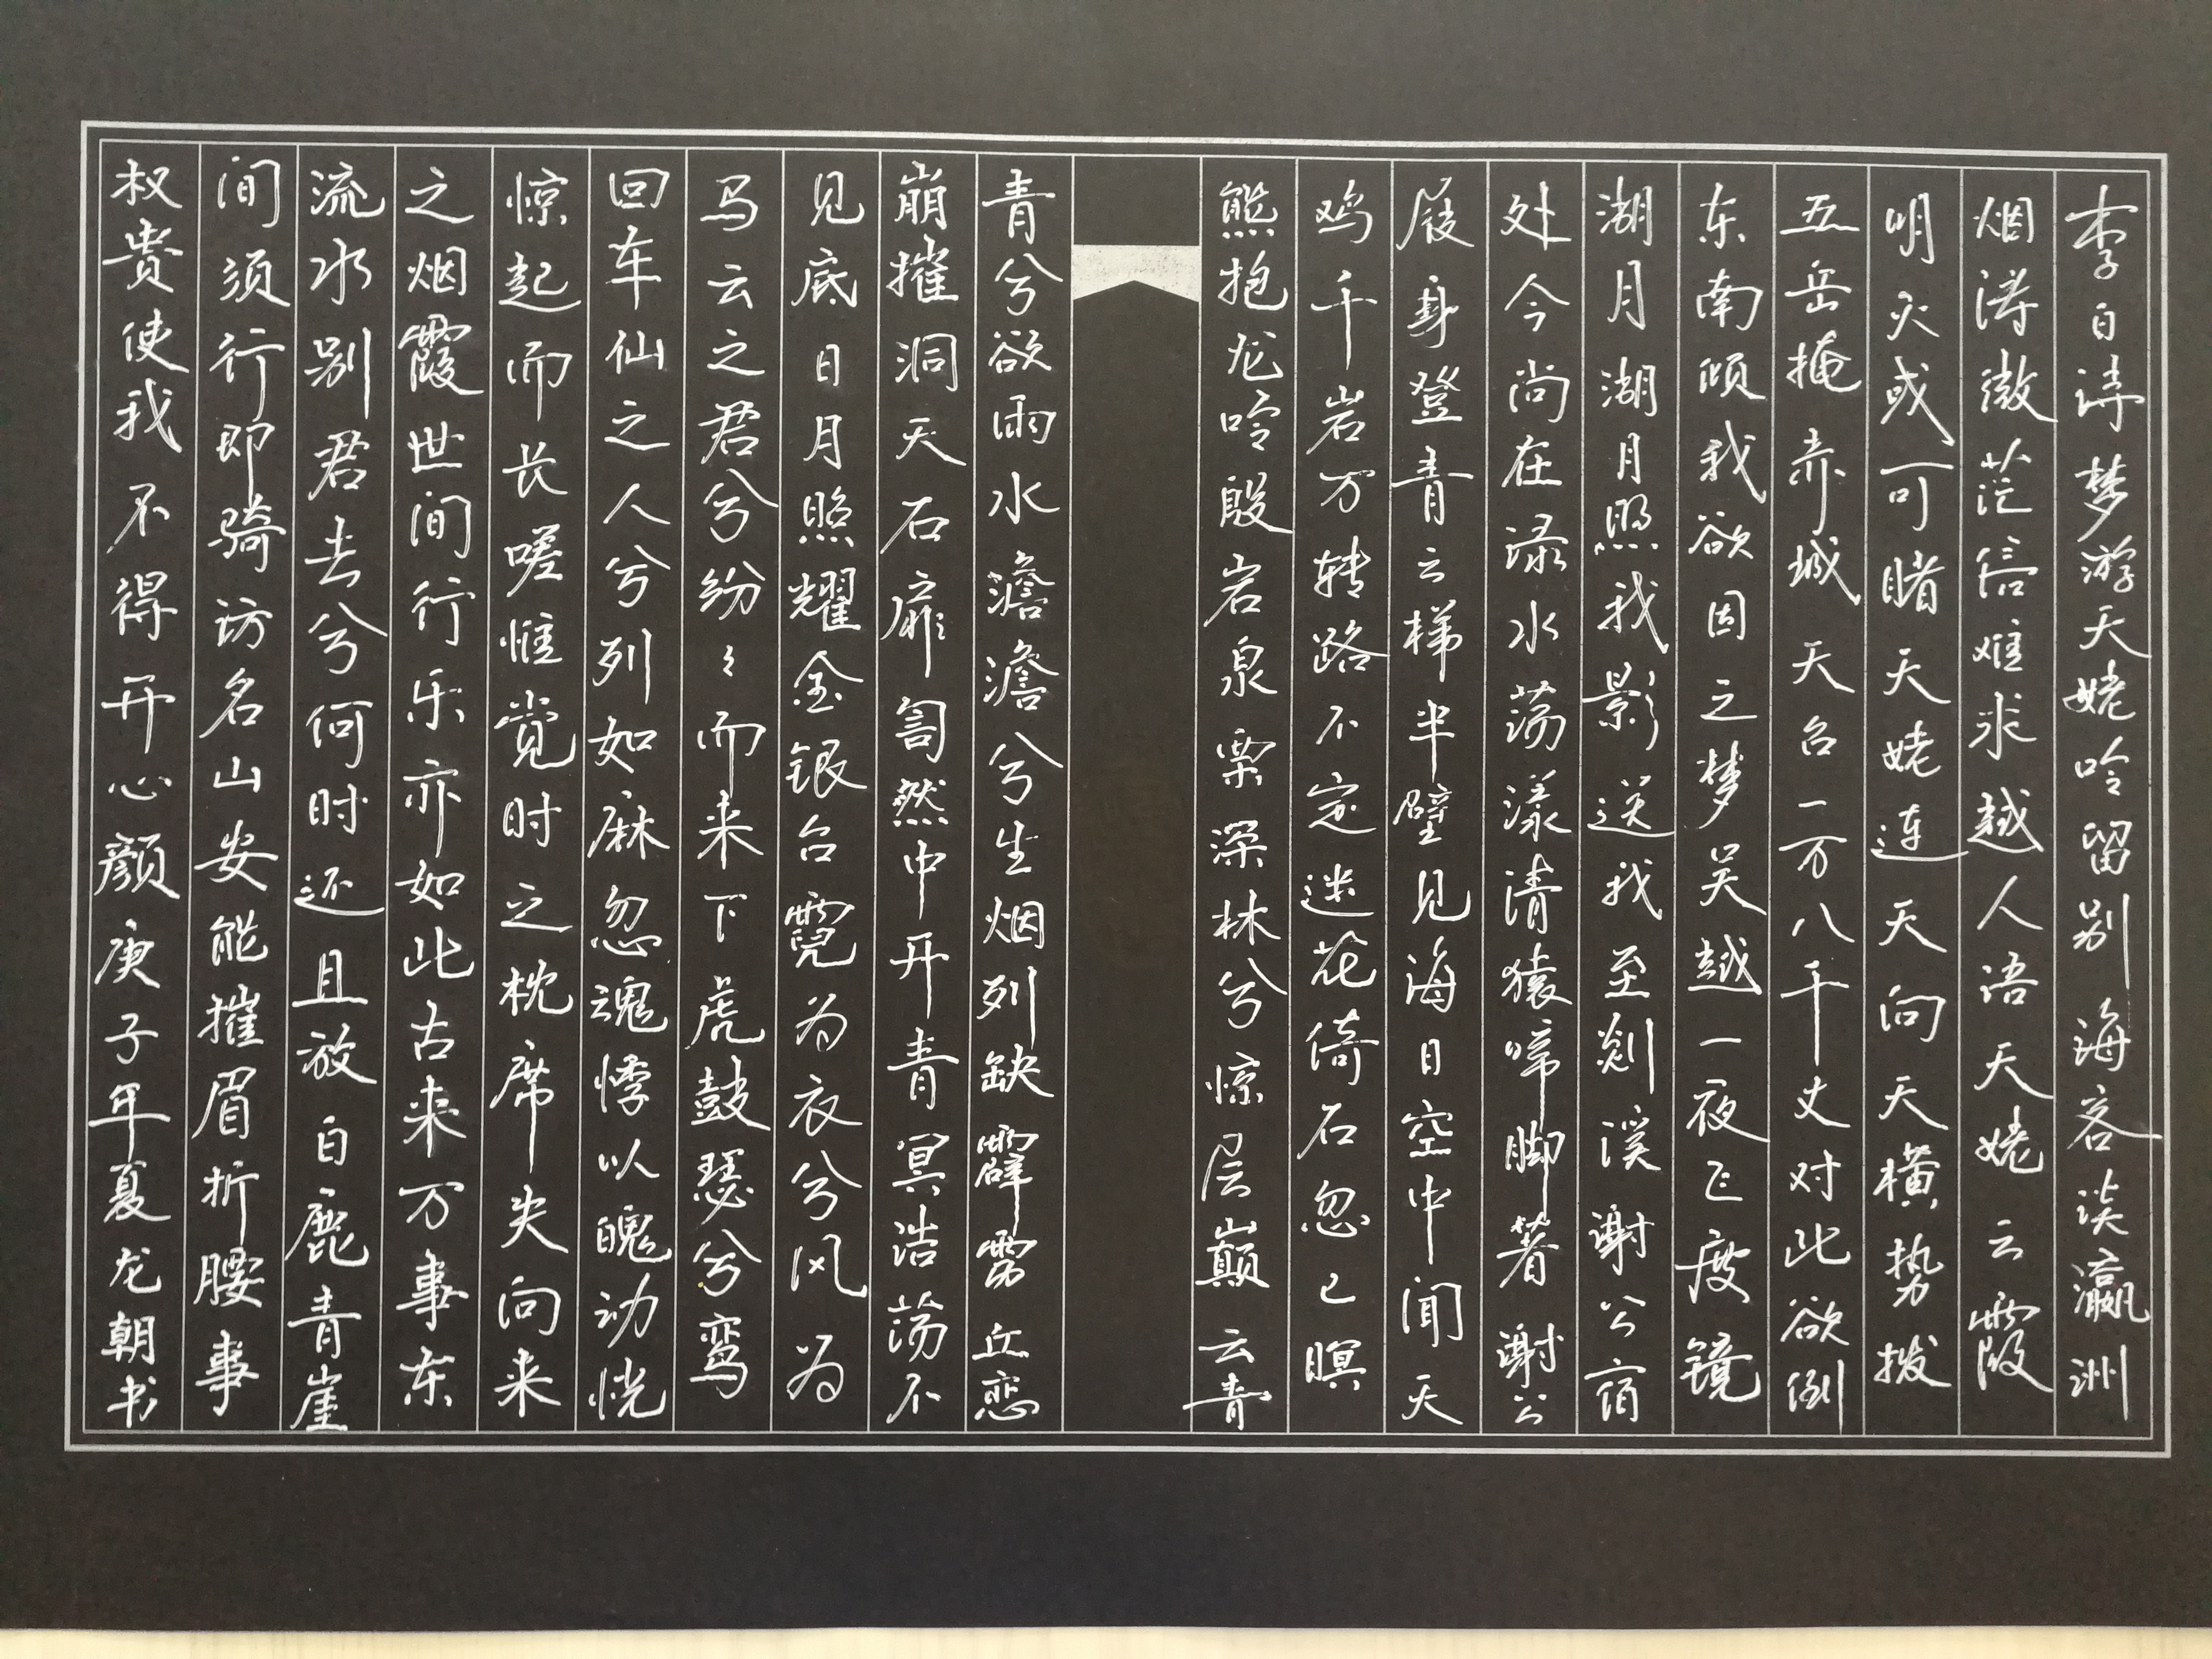 李白诗梦游天姥吟留别海客谈瀛洲
烟涛微茫信难求越人语天姥云霞
明灭或可睹天姥连天向天横势拔
五岳掩赤城天台一万八千丈对此欲倒
东南倾我欲因之梦吴越一夜飞度镜
湖月湖月照我影送我至剡溪谢公宿
处今尚在渌水荡漾清猿啼脚著谢公
屐身登青云梯半壁见海日空中闻天
鸡千岩万转路不定迷花倚石忽已暝
熊抱龙吟殷岩泉栗深林兮惊层巅云青
青兮欲雨水澹澹兮生烟列缺霹雳丘峦
崩摧洞天石扉訇然中开青冥浩荡不
见底日月照耀金银台霓为衣兮风为
马云之君兮纷々而来下虎鼓瑟兮鸾
回车仙之人兮列如麻忽魂悸以魄动恍
惊起而长嗟惟觉时之枕席失向来
之烟霞世间行乐亦如此古来万事东
流水别君去兮何时还且放白鹿青崖
间须行即骑访名山安能摧眉折腰事
权贵使我不得开心颜庚子年夏龙朝书